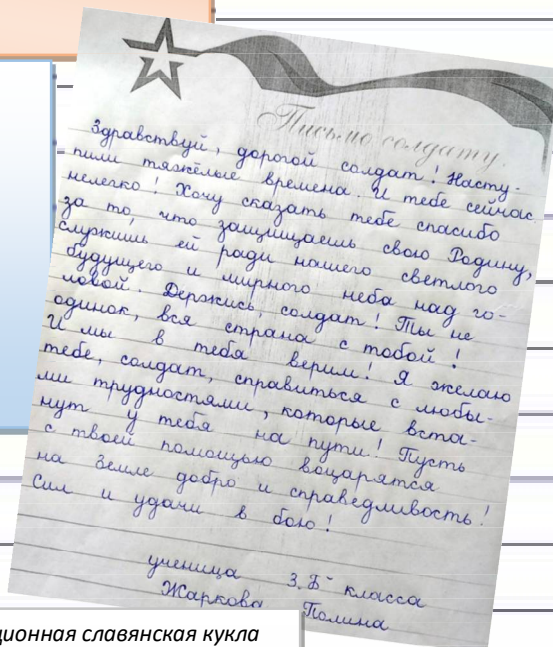 Письмо солдату.
Здравствуй, дорогой солдат! Насту-
пили тяжёлые времена. И тебе сейчас
нелегко! Хочу сказать тебе спасибо
за то, что защищаешь свою Родину,
служишь ей ради нашего светлого
будущего и мирного неба над го-
ловой. Держись, солдат! Ты не
одинок, вся страна с тобой!
И мы в тебя верим! Я желаю
тебе, солдат, справиться с любы-
ми трудностями, которые вста-
нут у тебя на пути! Пусть
с твоей помощью воцарятся
на Земле добро и справедливость!
Сил и удачи в бою!
ученица 3 "Б" класса
Жаркова Полина
ционная славянская кукла